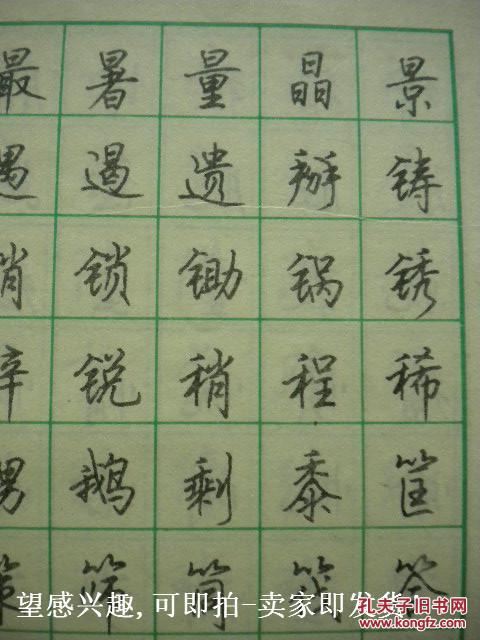 最暑量晶景
遇遏遗掰铸
销锁锄锅锈
锌锐稍程稀
甥鹅剩黍筐
策筛答
望感兴趣,可即拍-卖家即发货!
孔夫子旧书网